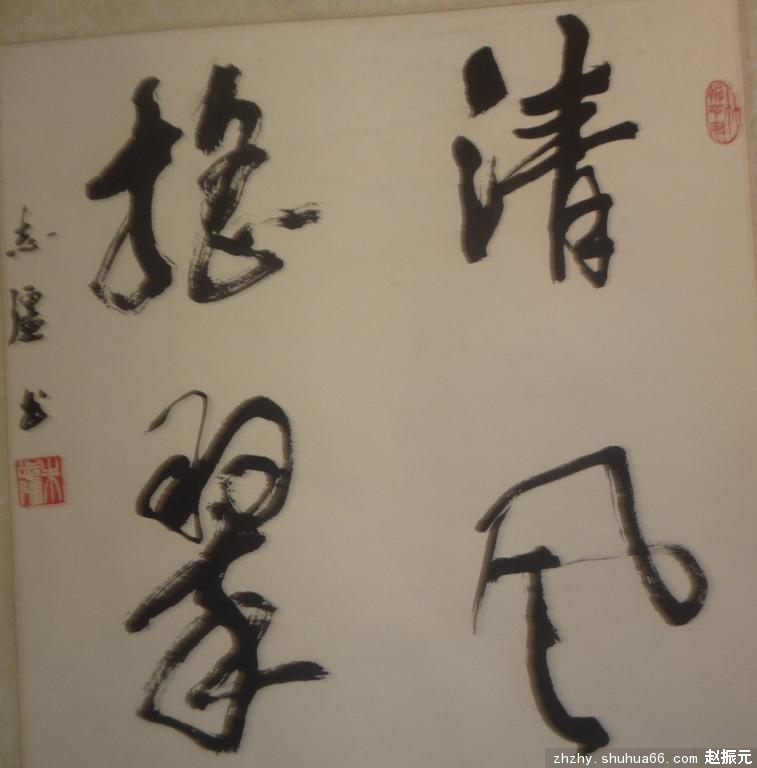 清风
摇翠
志疆书
zhzhy.shuhua66.com 赵振元